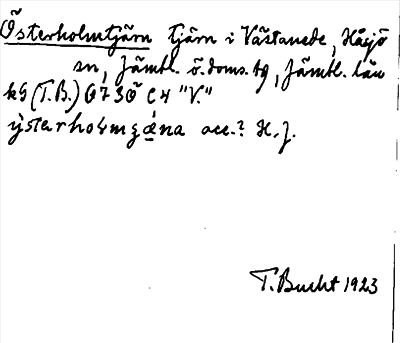 Österholmtjärn tjärn i Västanede, Håsjö
sn, Jämtl. ö. doms. tg, Jämtl. län
kG (T.B.) 0730 C4 "V."
acc.? H.J.
T. Bucht 1923